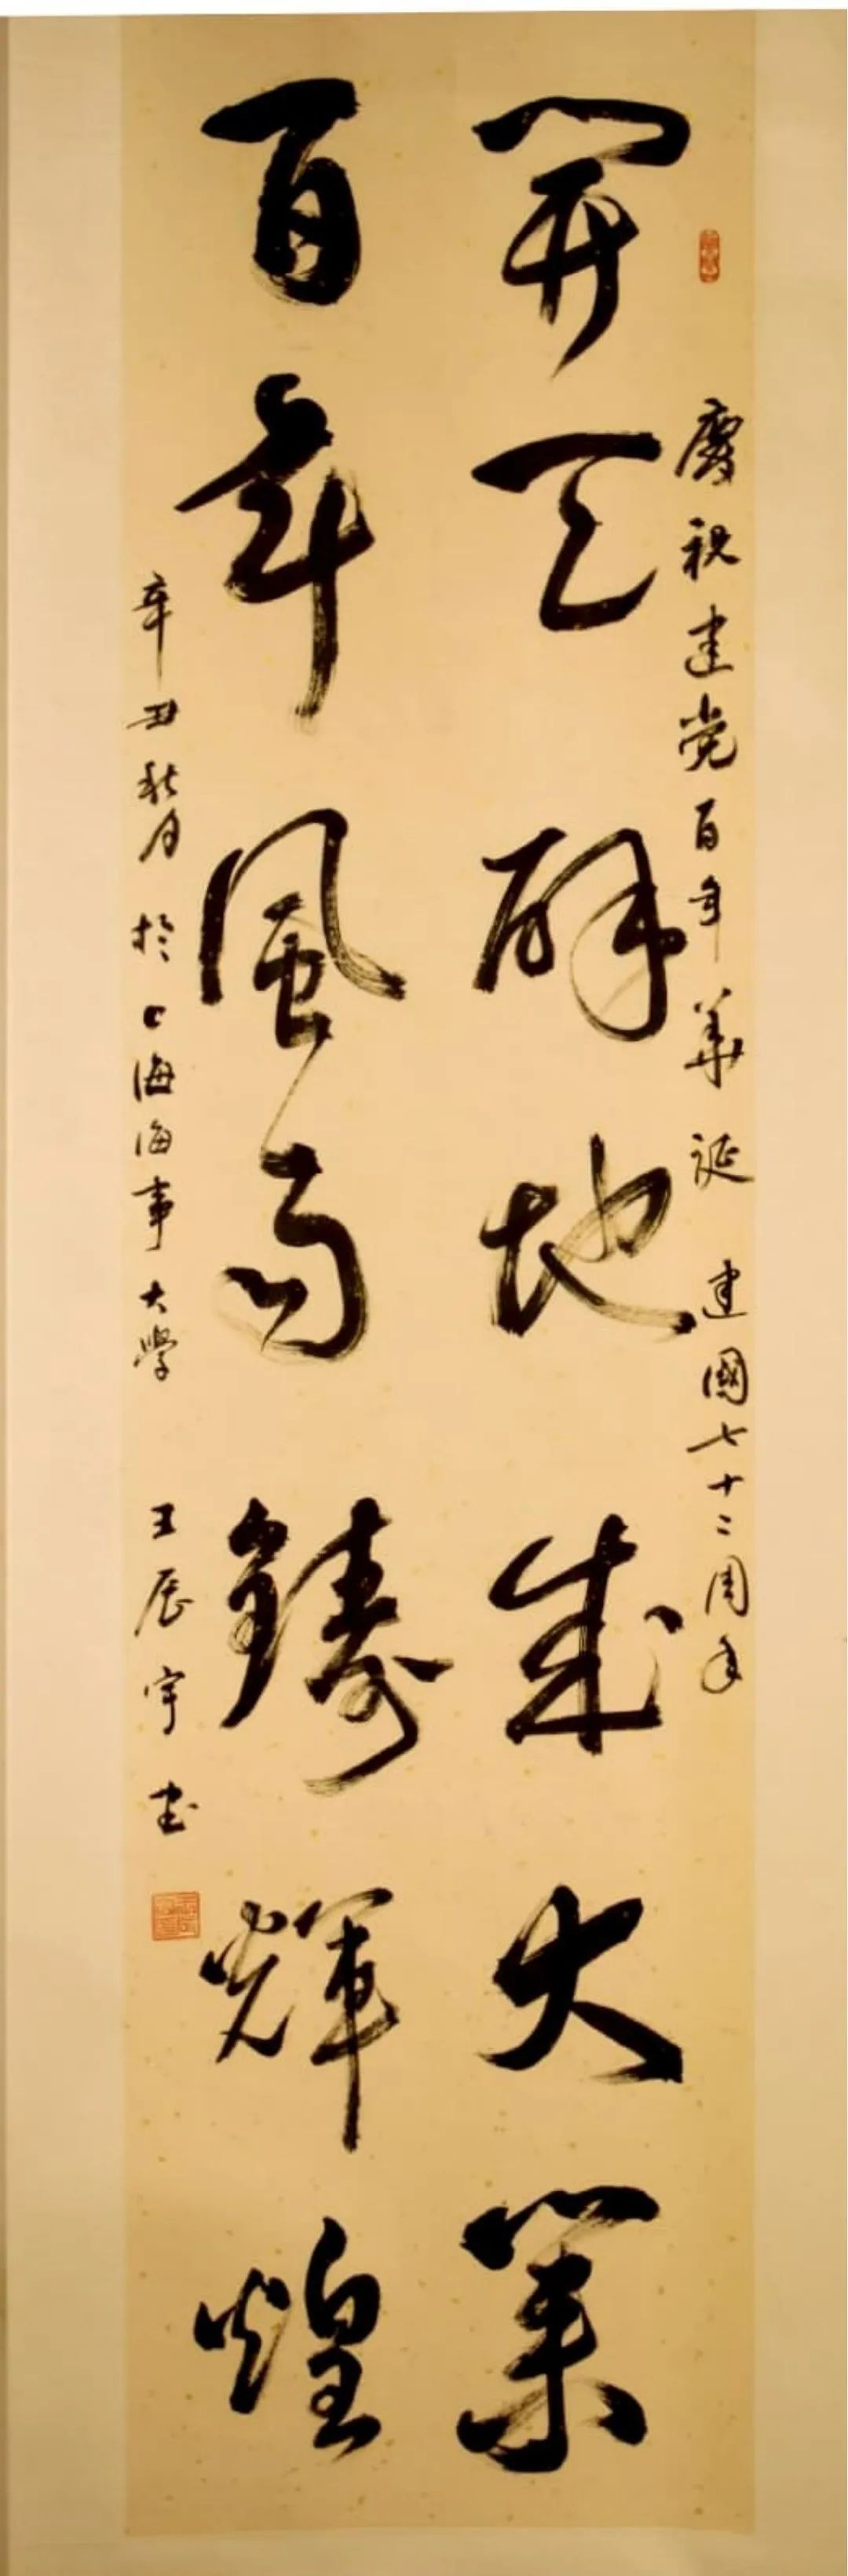 慶祝建党百年華誕 建國七十二周年
開天辟地成大業
百年風雨鑄輝煌
辛丑秋月於上海海事大學 王辰宇書